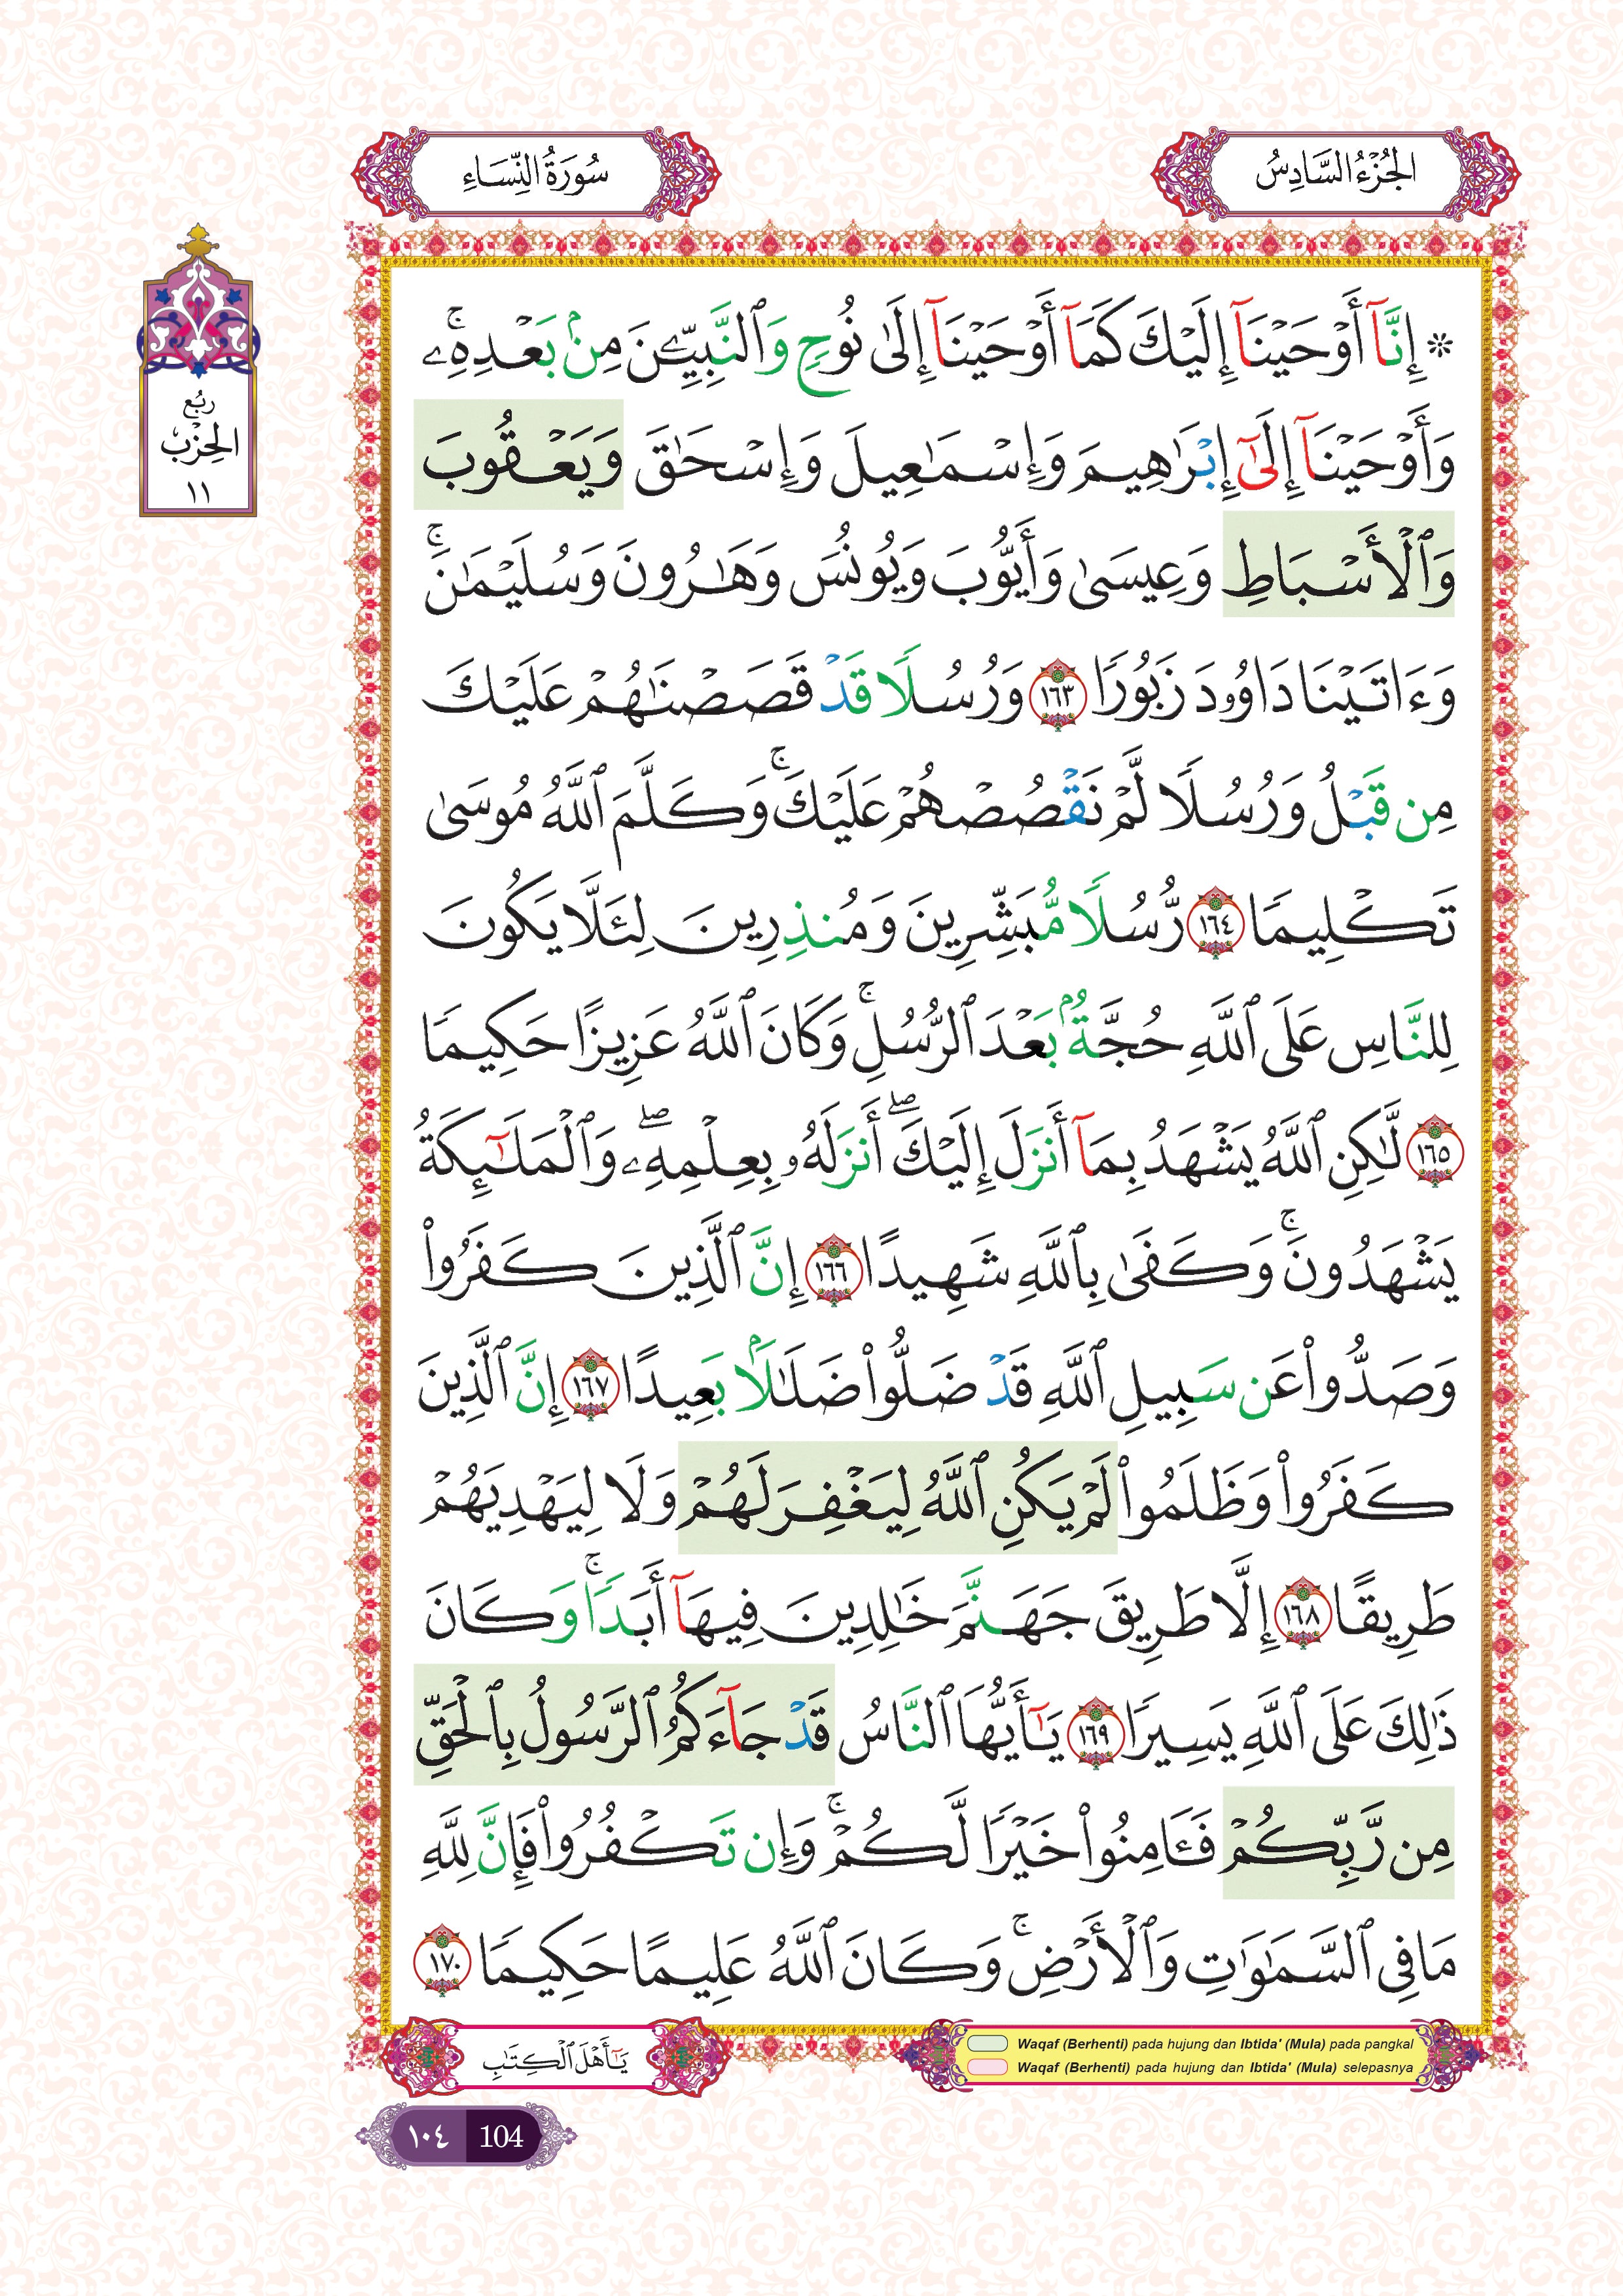 الجُزْءُ السَّادِسُ
سُورَةُ النِّسَاءِ
رُبُع
الحِزْبُ
١١
۞ إِنَّآ أَوْحَيْنَآ إِلَيْكَ كَمَآ أَوْحَيْنَآ إِلَىٰ نُوحٍ وَٱلنَّبِيِّـۧنَ مِنۢ بَعْدِهِۦۚ
وَأَوْحَيْنَآ إِلَىٰٓ إِبْرَٰهِيمَ وَإِسْمَـٰعِيلَ وَإِسْحَـٰقَ وَيَعْقُوبَ
وَٱلْأَسْبَاطِ وَعِيسَىٰ وَأَيُّوبَ وَيُونُسَ وَهَـٰرُونَ وَسُلَيْمَـٰنَۚ
وَءَاتَيْنَا دَاوُۥدَ زَبُورًا ١٦٣ وَرُسُلًا قَدْ قَصَصْنَـٰهُمْ عَلَيْكَ
مِن قَبْلُ وَرُسُلًا لَّمْ نَقْصُصْهُمْ عَلَيْكَۚ وَكَلَّمَ ٱللَّهُ مُوسَىٰ
تَكْلِيمًا ١٦٤ رُّسُلًا مُّبَشِّرِينَ وَمُنذِرِينَ لِئَلَّا يَكُونَ
لِلنَّاسِ عَلَى ٱللَّهِ حُجَّةٌۢ بَعْدَ ٱلرُّسُلِۚ وَكَانَ ٱللَّهُ عَزِيزًا حَكِيمًا
١٦٥ لَّـٰكِنِ ٱللَّهُ يَشْهَدُ بِمَآ أَنزَلَ إِلَيْكَۖ أَنزَلَهُۥ بِعِلْمِهِۦۖ وَٱلْمَلَـٰٓئِكَةُ
يَشْهَدُونَۚ وَكَفَىٰ بِٱللَّهِ شَهِيدًا ١٦٦ إِنَّ ٱلَّذِينَ كَفَرُوا۟
وَصَدُّوا۟ عَن سَبِيلِ ٱللَّهِ قَدْ ضَلُّوا۟ ضَلَـٰلًۢا بَعِيدًا ١٦٧ إِنَّ ٱلَّذِينَ
كَفَرُوا۟ وَظَلَمُوا۟ لَمْ يَكُنِ ٱللَّهُ لِيَغْفِرَ لَهُمْ وَلَا لِيَهْدِيَهُمْ
طَرِيقًا ١٦٨ إِلَّا طَرِيقَ جَهَنَّمَ خَـٰلِدِينَ فِيهَآ أَبَدًاۚ وَكَانَ
ذَٰلِكَ عَلَى ٱللَّهِ يَسِيرًا ١٦٩ يَـٰٓأَيُّهَا ٱلنَّاسُ قَدْ جَآءَكُمُ ٱلرَّسُولُ بِٱلْحَقِّ
مِن رَّبِّكُمْ فَـَٔامِنُوا۟ خَيْرًا لَّكُمْۚ وَإِن تَكْفُرُوا۟ فَإِنَّ لِلَّهِ
مَا فِى ٱلسَّمَـٰوَٰتِ وَٱلْأَرْضِۚ وَكَانَ ٱللَّهُ عَلِيمًا حَكِيمًا ١٧٠
Waqaf (Berhenti) pada hujung dan Ibtida' (Mula) pada pangkal
Waqaf (Berhenti) pada hujung dan Ibtida' (Mula) selepasnya
يَـٰٓأَهْلَ ٱلْكِتَـٰبِ
١٠٤ 104